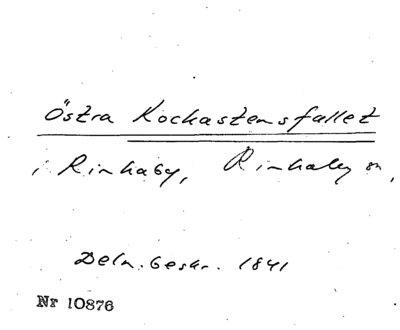 Östra Kockastensfallet
i Rinkaby, Rinkaby sn,
Deln. beskr. 1841
Nr 10876